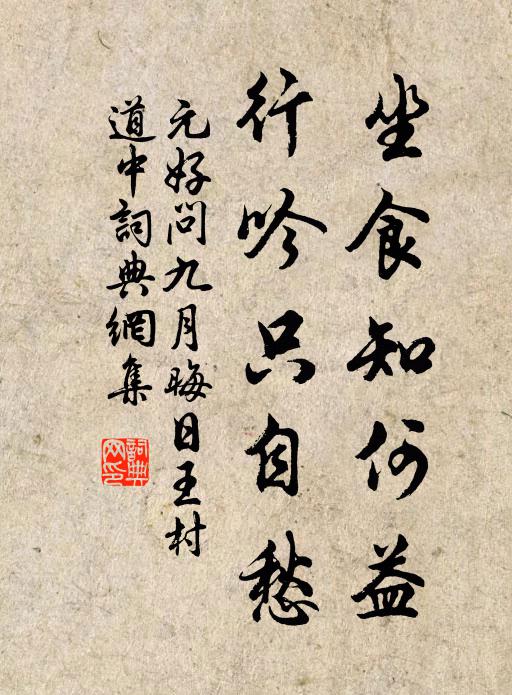 坐食知何益
行吟只自愁
元好問九月晦日王村
道中詞典網集
詞典
网印